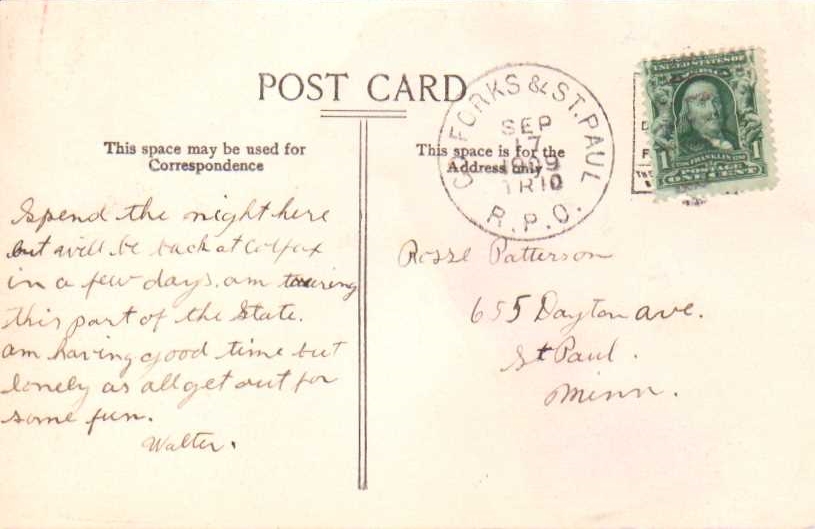 POST CARD
This space may be used for
Correspondence
Spend the night here
but will be back at Colfax
in a few days. am touring
this part of the State.
am having good time but
lonely as all get out for
some fun.
Walter.
This space is for the
Address only
FORKS & ST. PAUL
SEP
17
1909
TR10
R.P.O.
UNITED STATES OF
FRANKLIN
1 1
POSTAGE
ONE CENT
Patterson
655 Dayton ave.
St Paul.
Minn.